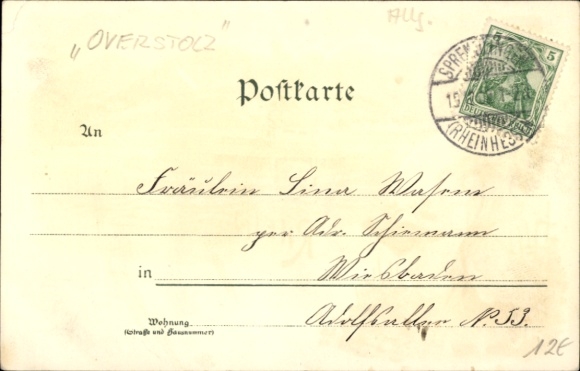 „OVERSTOLZ”
Allg.
5
SPRENDLINGEN
(RHEINHESS.)
Postkarte
An
Fräulein Lina Wasem
per Adr. Schiemann
in Wiesbaden
Adolfsallee N. 53.
Wohnung
(Straße und Hausnummer)
12€